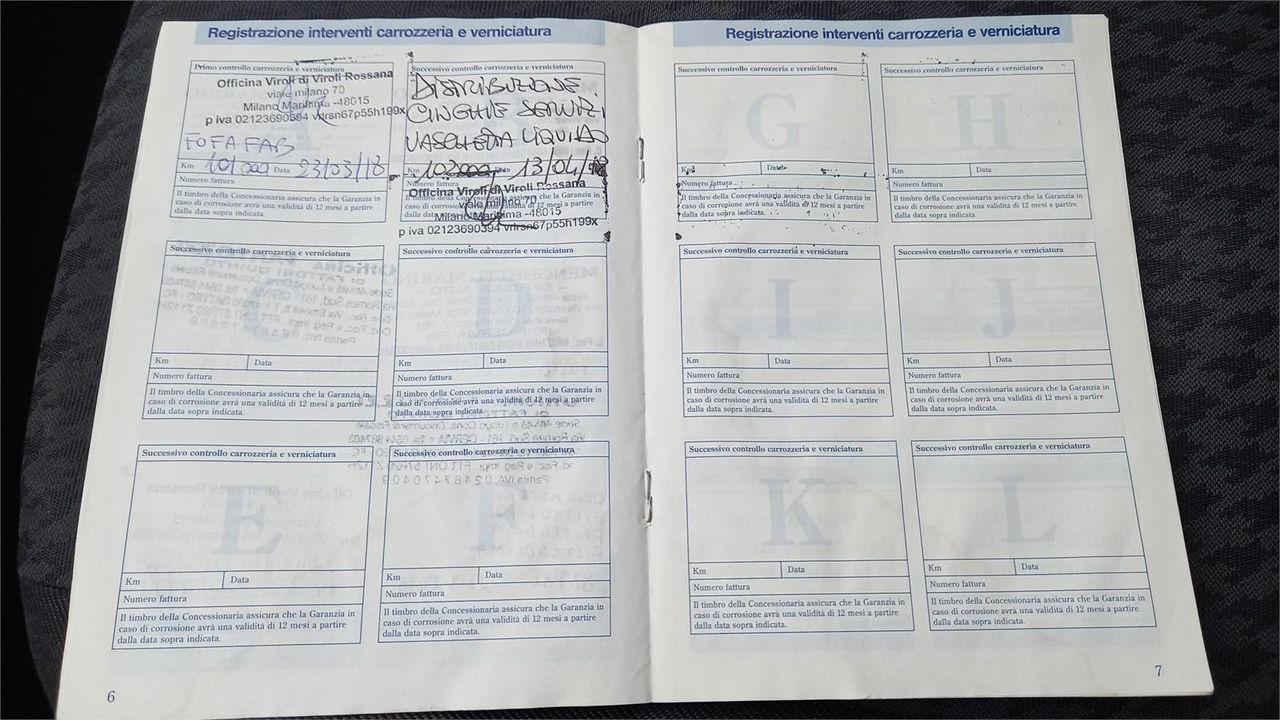 Registrazione interventi carrozzeria e verniciatura
Primo controllo carrozzeria e verniciatura
Officina Viroli di Viroli Rossana
viale milano 70
Milano Marittima -48015
p iva 02123690394 vrlrsn67p55h199x
FOFA FAB
Km 101000 Data 23/03/18
Numero fattura
Il timbro della Concessionaria assicura che la Garanzia in
caso di corrosione avrà una validità di 12 mesi a partire
dalla data sopra indicata.
Successivo controllo carrozzeria e verniciatura
DISTRIBUZIONE
CINGHIE SERVIZI
VASCHETTA LIQUIDO
Km 102000 Data 13/04/
Numero fattura
Officina Viroli di Viroli Rossana
viale milano 70
Milano Marittima -48015
p iva 02123690394 vrlrsn67p55h199x
Il timbro della Concessionaria assicura che la Garanzia in
caso di corrosione avrà una validità di 12 mesi a partire
dalla data sopra indicata.
Successivo controllo carrozzeria e verniciatura
Km Data
Numero fattura
Il timbro della Concessionaria assicura che la Garanzia in
caso di corrosione avrà una validità di 12 mesi a partire
dalla data sopra indicata.
Successivo controllo carrozzeria e verniciatura
D
Km Data
Numero fattura
Il timbro della Concessionaria assicura che la Garanzia in
caso di corrosione avrà una validità di 12 mesi a partire
dalla data sopra indicata.
Successivo controllo carrozzeria e verniciatura
E
Km Data
Numero fattura
Il timbro della Concessionaria assicura che la Garanzia in
caso di corrosione avrà una validità di 12 mesi a partire
dalla data sopra indicata.
Successivo controllo carrozzeria e verniciatura
F
Km Data
Numero fattura
Il timbro della Concessionaria assicura che la Garanzia in
caso di corrosione avrà una validità di 12 mesi a partire
dalla data sopra indicata.
6
Registrazione interventi carrozzeria e verniciatura
Successivo controllo carrozzeria e verniciatura
G
Km Data
Numero fattura
Il timbro della Concessionaria assicura che la Garanzia in
caso di corrosione avrà una validità di 12 mesi a partire
dalla data sopra indicata.
Successivo controllo carrozzeria e verniciatura
H
Km Data
Numero fattura
Il timbro della Concessionaria assicura che la Garanzia in
caso di corrosione avrà una validità di 12 mesi a partire
dalla data sopra indicata.
Successivo controllo carrozzeria e verniciatura
I
Km Data
Numero fattura
Il timbro della Concessionaria assicura che la Garanzia in
caso di corrosione avrà una validità di 12 mesi a partire
dalla data sopra indicata.
Successivo controllo carrozzeria e verniciatura
J
Km Data
Numero fattura
Il timbro della Concessionaria assicura che la Garanzia in
caso di corrosione avrà una validità di 12 mesi a partire
dalla data sopra indicata.
Successivo controllo carrozzeria e verniciatura
K
Km Data
Numero fattura
Il timbro della Concessionaria assicura che la Garanzia in
caso di corrosione avrà una validità di 12 mesi a partire
dalla data sopra indicata.
Successivo controllo carrozzeria e verniciatura
L
Km Data
Numero fattura
Il timbro della Concessionaria assicura che la Garanzia in
caso di corrosione avrà una validità di 12 mesi a partire
dalla data sopra indicata.
7